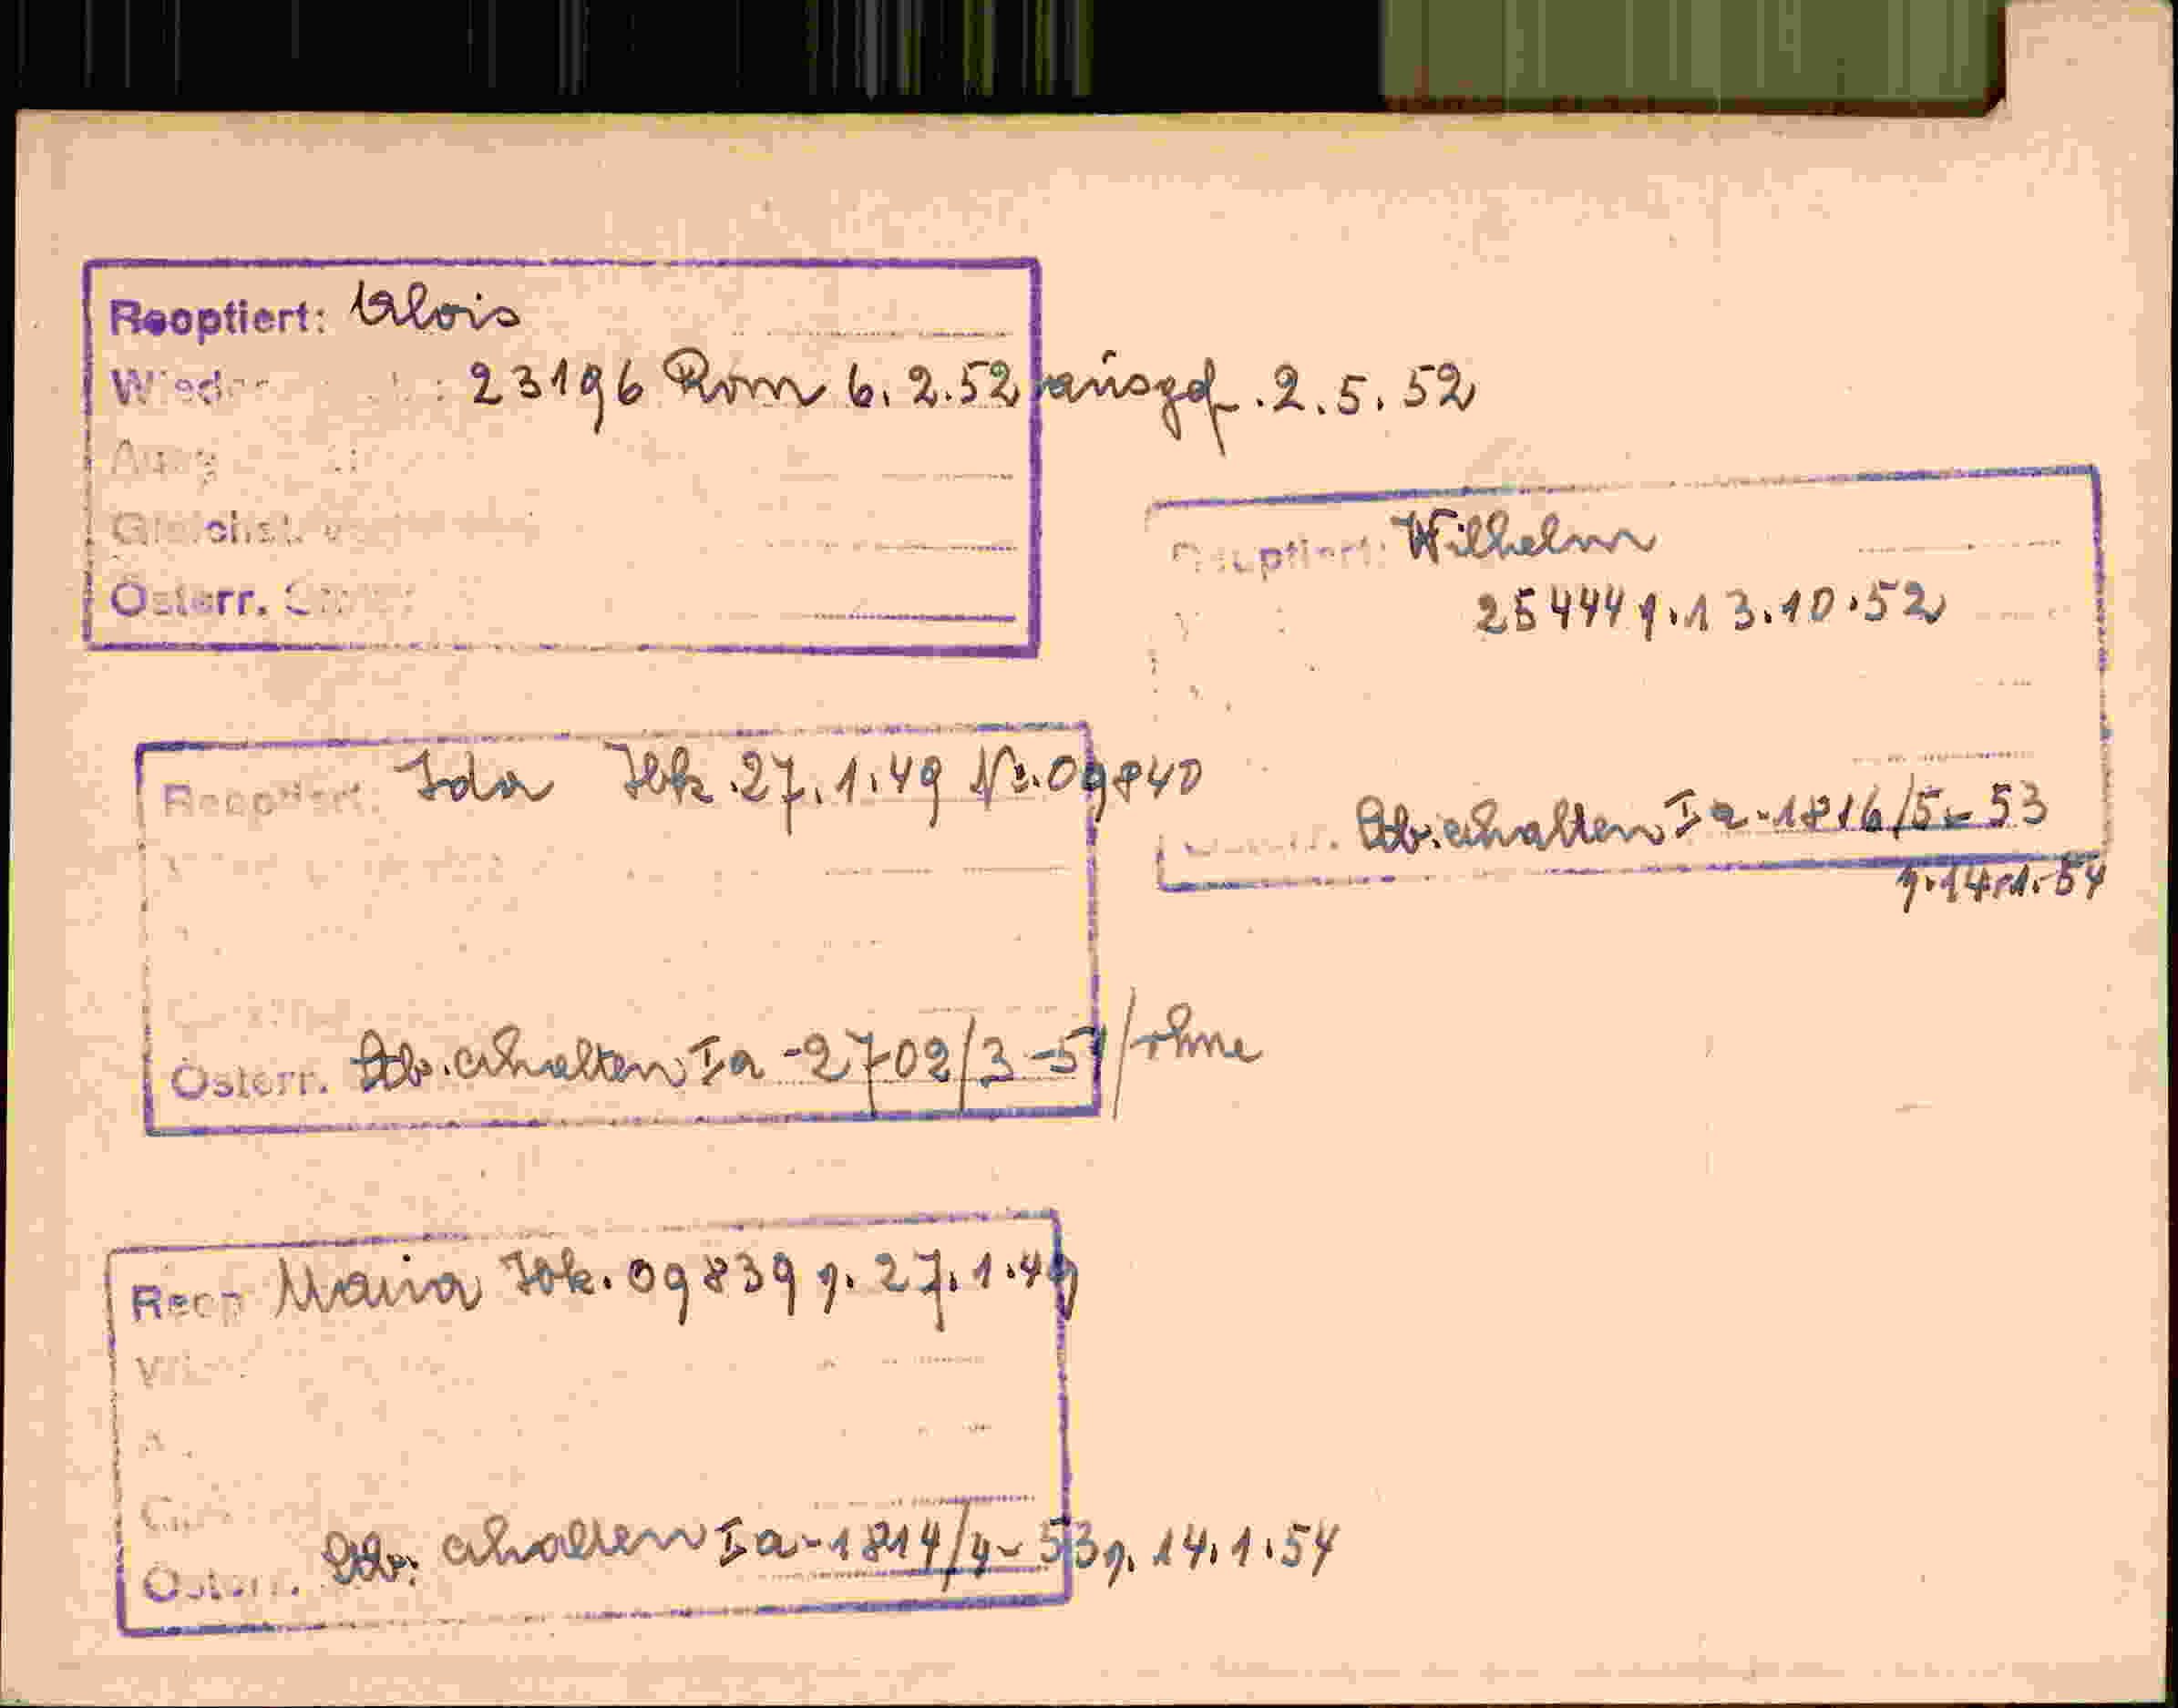 Reoptiert: Alois
23196 Rom 6.2.52 ausgef. 2.5.52
Österr.
Reoptiert: Wilhelm
25444 v. 13.10.52
Stb. erhalten Ia-1816/5-53
v. 14.1.54
Reoptiert: Ida Ibk. 27.1.49 Nr. 09840
Österr. Stb. erhalten Ia-2702/3-51/ohne
Maria Ibk. 09839 v. 27.1.49
Österr. Stb. erhalten Ia-1814/4-53 v. 14.1.54